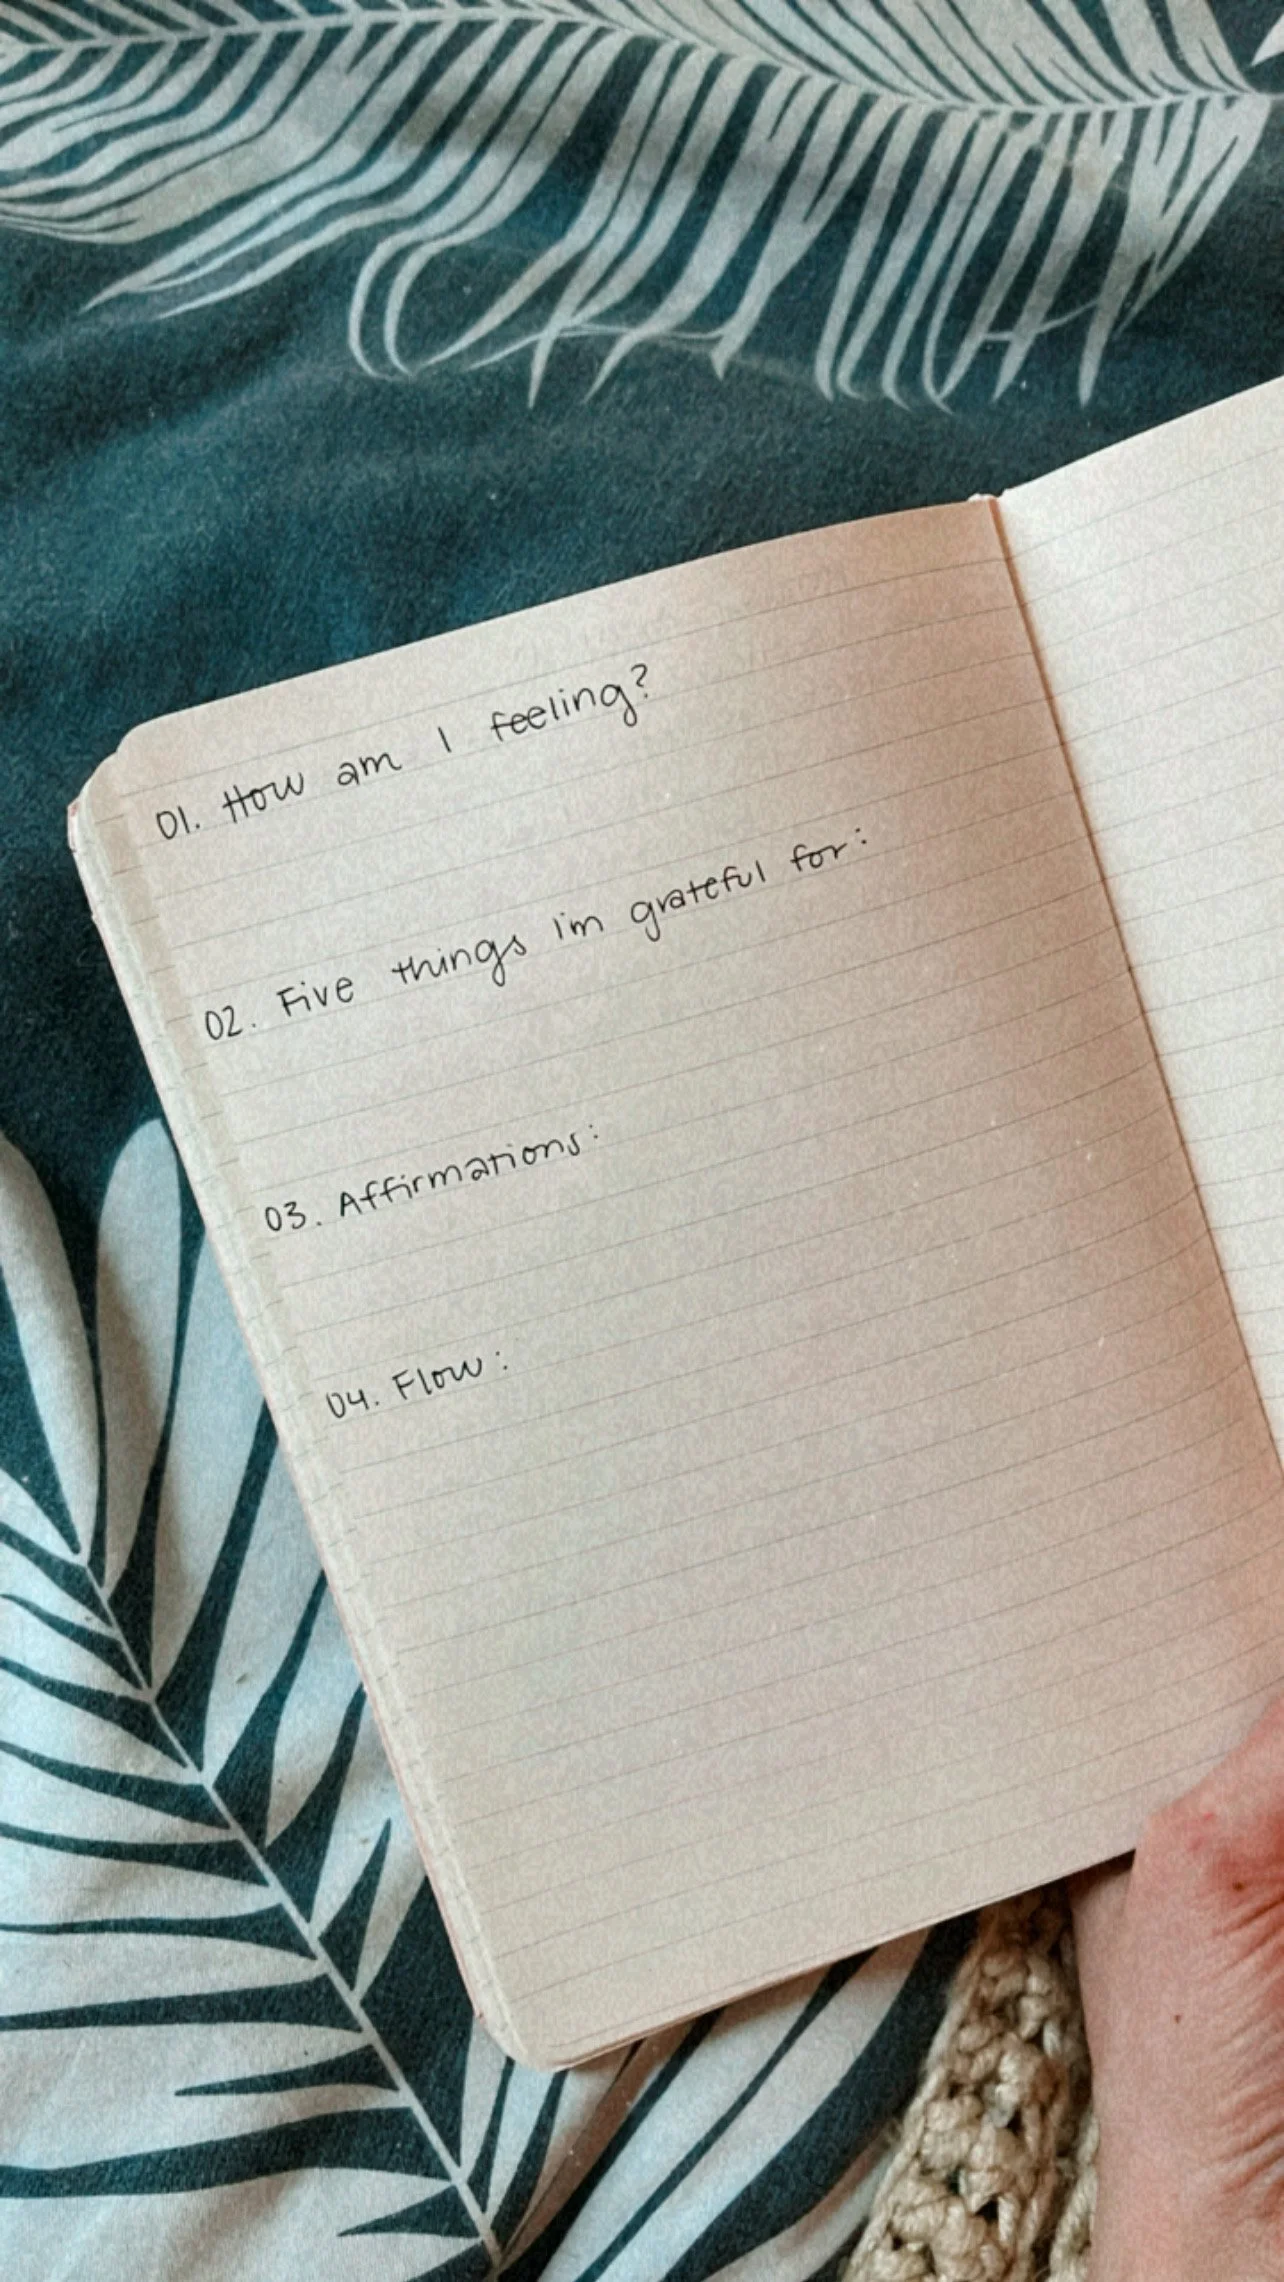 01. How am I feeling?
02. Five things I'm grateful for:
03. Affirmations:
04. Flow: